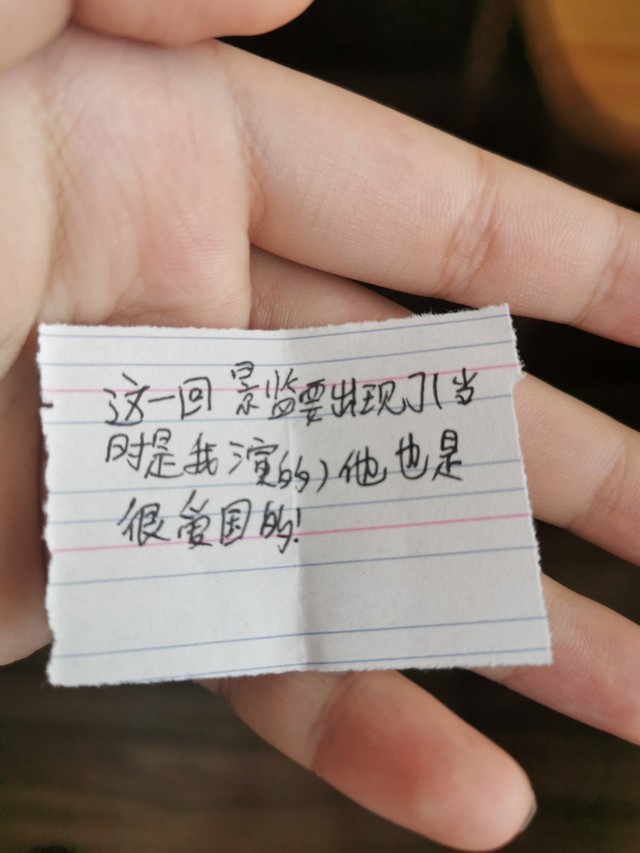 这一回景监要出现了(当
时是我演的)他也是
很爱国的!